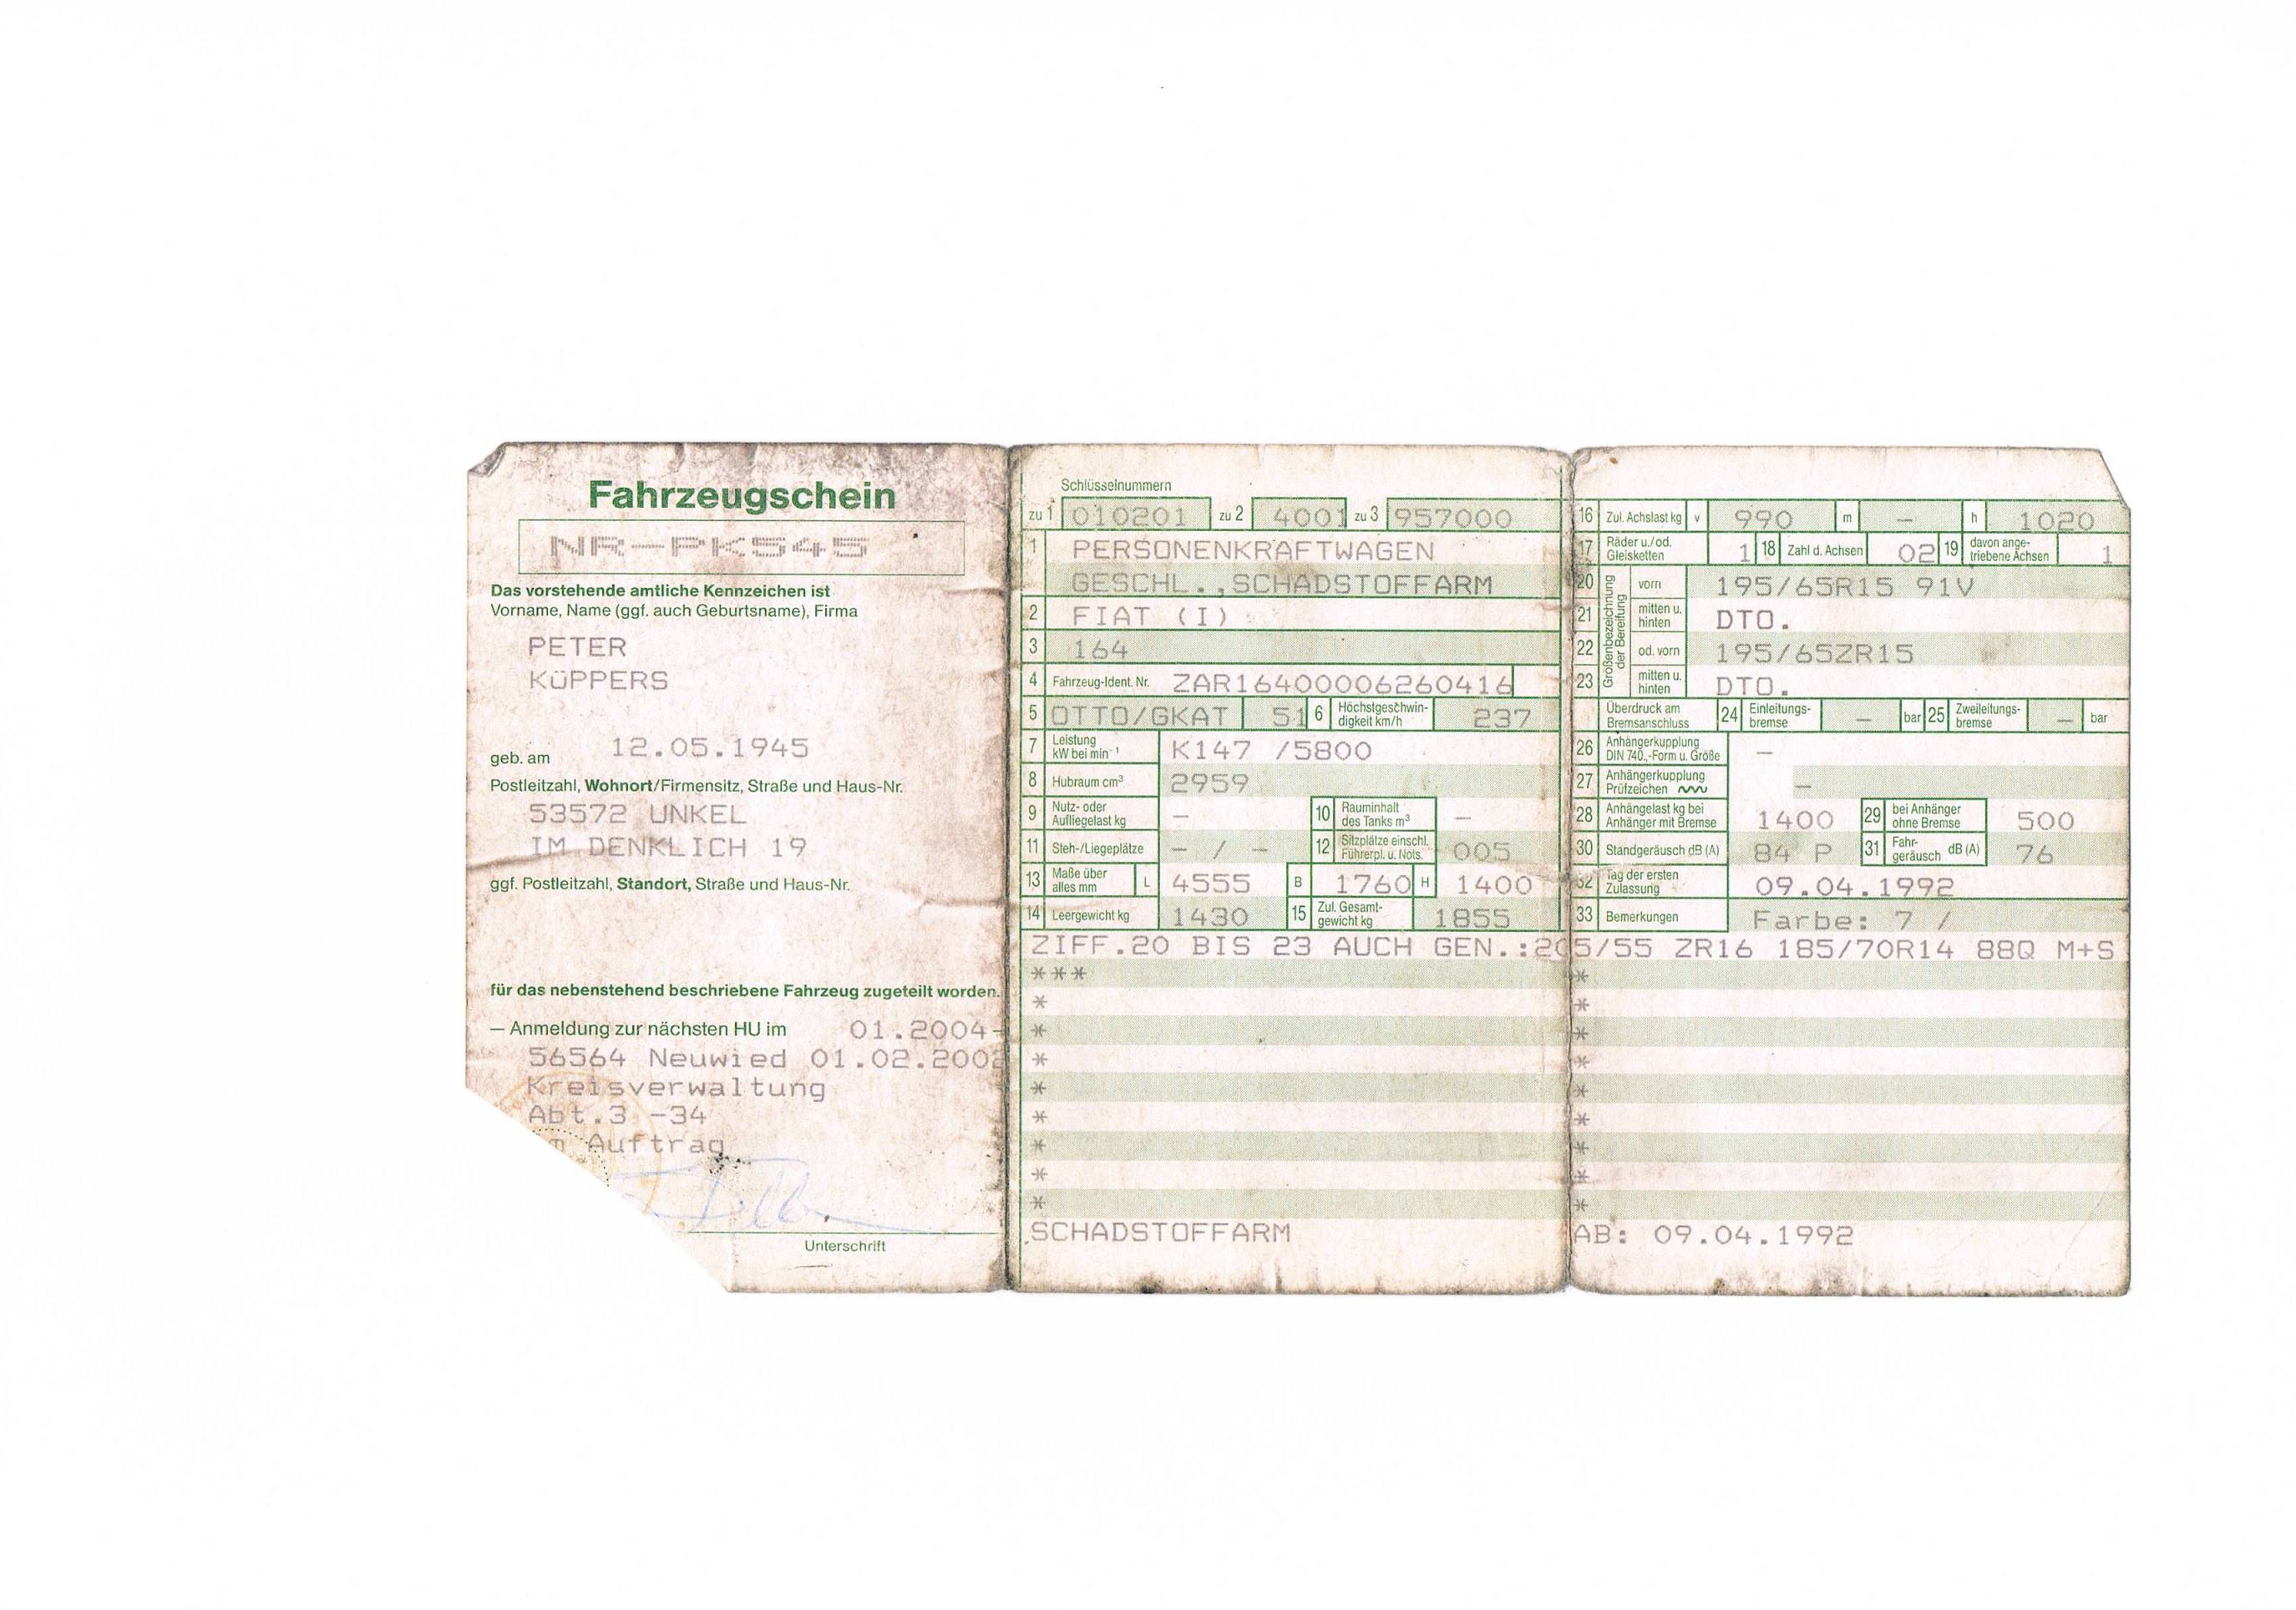 Fahrzeugschein
NR-PK545
Das vorstehende amtliche Kennzeichen ist
Vorname, Name (ggf. auch Geburtsname), Firma
PETER
KüPPERS
geb. am 12.05.1945
Postleitzahl, Wohnort/Firmensitz, Straße und Haus-Nr.
53572 UNKEL
IM DENKLICH 19
ggf. Postleitzahl, Standort, Straße und Haus-Nr.
für das nebenstehend beschriebene Fahrzeug zugeteilt worden.
— Anmeldung zur nächsten HU im 01.2004-
56564 Neuwied 01.02.2002
Kreisverwaltung
Abt.3 -34
Auftrag
Unterschrift
Schlüsselnummern
zu 1 010201 zu 2 4001 zu 3 957000
1 PERSONENKRAFTWAGEN
GESCHL.,SCHADSTOFFARM
2 FIAT (I)
3 164
4 Fahrzeug-Ident. Nr. ZAR16400006260416
5 OTTO/GKAT 51 6 Höchstgeschwin-
digkeit km/h 237
7 Leistung
kW bei min⁻¹ K147 /5800
8 Hubraum cm³ 2959
9 Nutz- oder
Aufliegelast kg – 10 Rauminhalt
des Tanks m³ –
11 Steh-/Liegeplätze – / – 12 Sitzplätze einschl.
Führerpl. u. Nots. 005
13 Maße über
alles mm L 4555 B 1760 H 1400
14 Leergewicht kg 1430 15 Zul. Gesamt-
gewicht kg 1855
16 Zul. Achslast kg v 990 m – h 1020
17 Räder u./od.
Gleisketten 1 18 Zahl d. Achsen 02 19 davon ange-
triebene Achsen 1
Größenbezeichnung
der Bereifung
20 vorn 195/65R15 91V
21 mitten u.
hinten DTO.
22 od. vorn 195/65ZR15
23 mitten u.
hinten DTO.
Überdruck am
Bremsanschluss 24 Einleitungs-
bremse – bar 25 Zweileitungs-
bremse – bar
26 Anhängerkupplung
DIN 740.,-Form u. Größe –
27 Anhängerkupplung
Prüfzeichen –
28 Anhängelast kg bei
Anhänger mit Bremse 1400 29 bei Anhänger
ohne Bremse 500
30 Standgeräusch dB (A) 84 P 31 Fahr-
geräusch dB (A) 76
32 Tag der ersten
Zulassung 09.04.1992
33 Bemerkungen Farbe: 7 /
ZIFF.20 BIS 23 AUCH GEN.:205/55 ZR16 185/70R14 88Q M+S
*** *
* *
* *
* *
* *
* *
* *
* *
* *
SCHADSTOFFARM AB: 09.04.1992